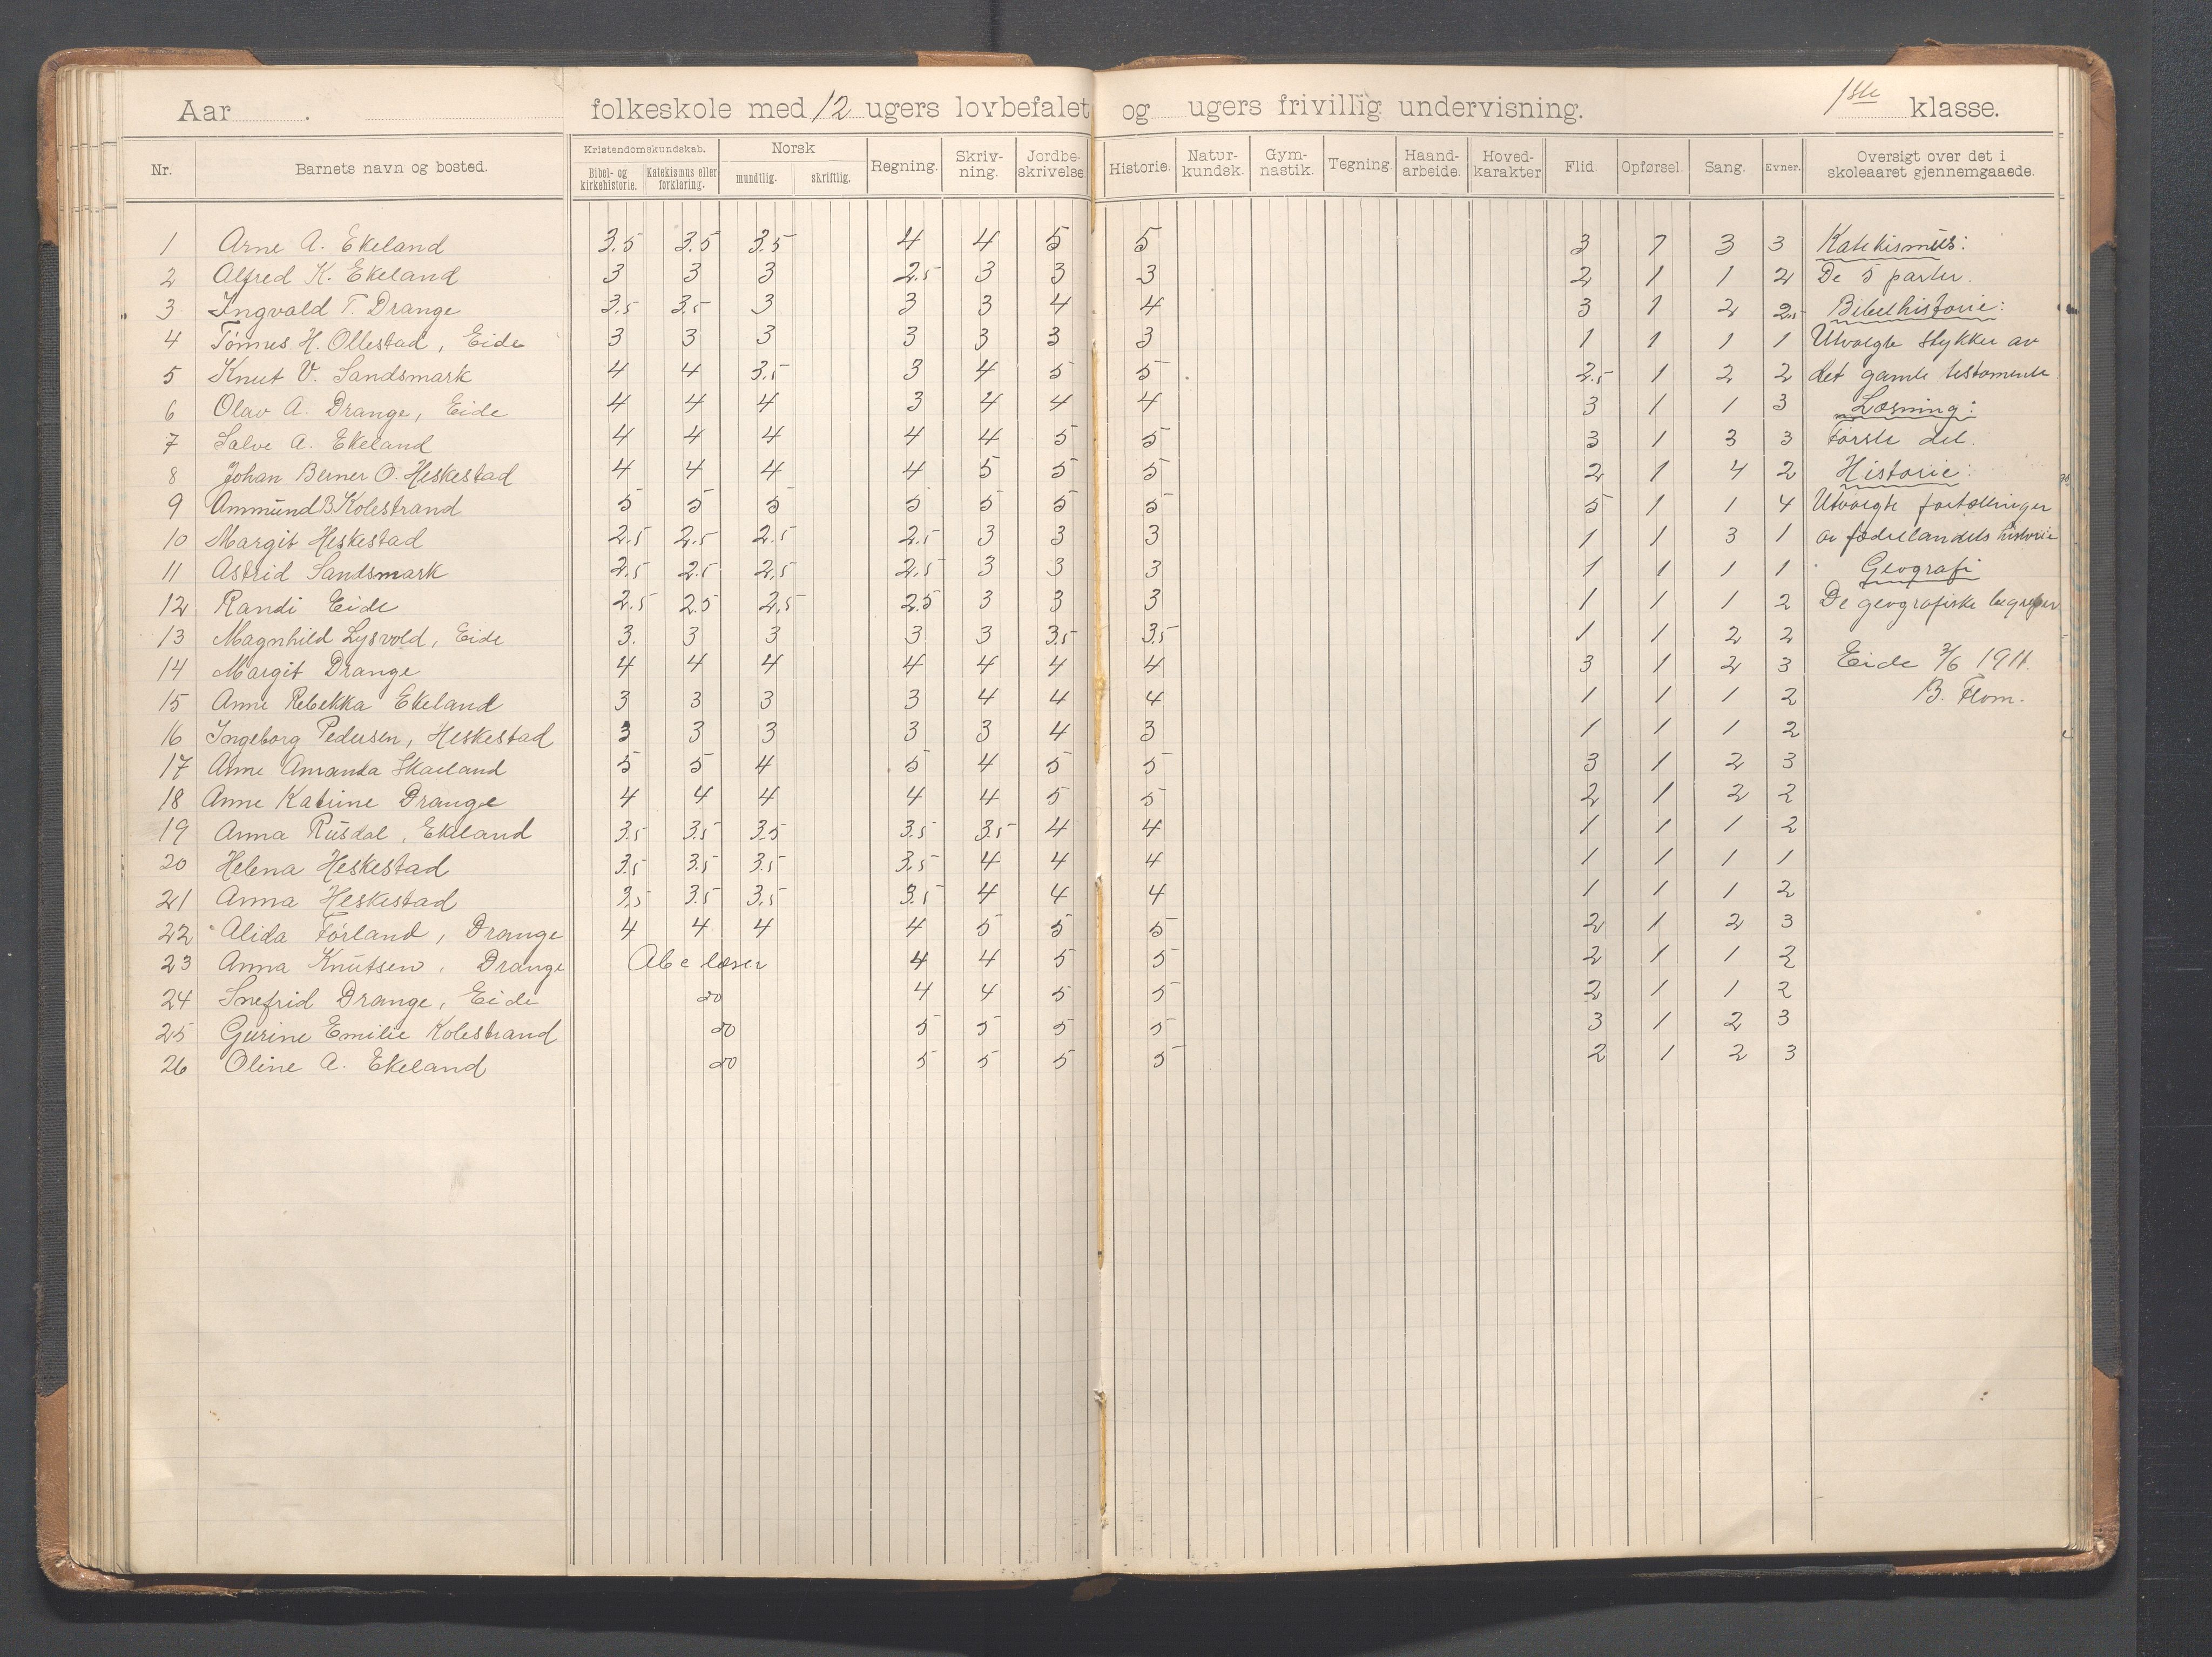 Aar . folkeskole med 12 ugers lovbefalet og ugers frivillig undervisning. 1ste klasse.
Nr. Barnets navn og bosted. Kristendomskundskab. Bibel- og kirkehistorie. Katekismus eller forklaring. Norsk mundtlig. skriftlig. Regning. Skriv-ning. Jordbe-skrivelse. Historie. Natur-kundsk. Gym-nastik. Tegning. Haand-arbeide. Hoved-karakter Flid. Opførsel. Sang. Evner. Oversigt over det i skoleaaret gjennemgaaede.
1 Arne A. Ekeland 3.5 3.5 3.5 4 4 5 5 3 1 3 3 Katekismus:
2 Alfred K. Ekeland 3 3 3 2.5 3 3 3 2 1 1 2 De 5 parter.
3 Ingvald T. Drange 3.5 3.5 3 3 3 4 4 3 1 2 2.5 Bibelhistorie:
4 Tønnes H. Ollestad, Eide 3 3 3 3 3 3 3 1 1 1 1 Utvalgte stykker av
5 Knut V. Sandsmark 4 4 3.5 3 4 5 5 2.5 1 2 2 det gamle testamente
6 Olav A. Drange, Eide 4 4 4 3 4 4 4 3 1 1 3 Læsning:
7 Salve A. Ekeland 4 4 4 4 4 5 5 3 1 3 3 Første del.
8 Johan Berner O. Heskestad 4 4 4 4 5 5 5 2 1 4 2 Historie:
9 Ammund B Kolestrand 5 5 5 5 5 5 5 5 1 1 4 Utvalgte fortællinger
10 Margit Heskestad 2.5 2.5 2.5 2.5 3 3 3 1 1 3 1 av fædrelandets historie
11 Astrid Sandsmark 2.5 2.5 2.5 2.5 3 3 3 1 1 1 1 Geografi
12 Randi Eide 2.5 2.5 2.5 2.5 3 3 3 1 1 1 2 De geografiske begreper
13 Magnhild Lysvold, Eide 3. 3 3 3 3 3.5 3.5 1 1 2 2
14 Margit Drange 4 4 4 4 4 4 4 3 1 2 3 Eide 3/6 1911.
15 Anne Rebekka Ekeland 3 3 3 3 4 4 4 1 1 1 2 B. Flom.
16 Ingeborg Pedersen, Heskestad 3 3 3 3 3 4 3 1 1 1 2
17 Anne Amanda Skaeland 5 5 4 5 4 5 5 3 1 2 3
18 Anne Katrine Drange 4 4 4 4 4 5 5 2 1 2 2
19 Anna Rusdal, Ekeland 3.5 3.5 3.5 3.5 3.5 4 4 1 1 1 2
20 Helena Heskestad 3.5 3.5 3.5 3.5 4 4 4 1 1 1 1
21 Anna Heskestad 3.5 3.5 3.5 3.5 4 4 4 1 1 1 2
22 Alida Førland, Drange 4 4 4 4 5 5 5 2 1 2 3
23 Anna Knutsen, Drange Abc læser 4 4 5 5 2 1 1 2
24 Snefrid Drange, Eide do 4 4 5 5 2 1 1 2
25 Gurine Emilie Kolestrand do 5 5 5 5 3 1 2 3
26 Oline A. Ekeland do 5 5 5 5 2 1 2 3